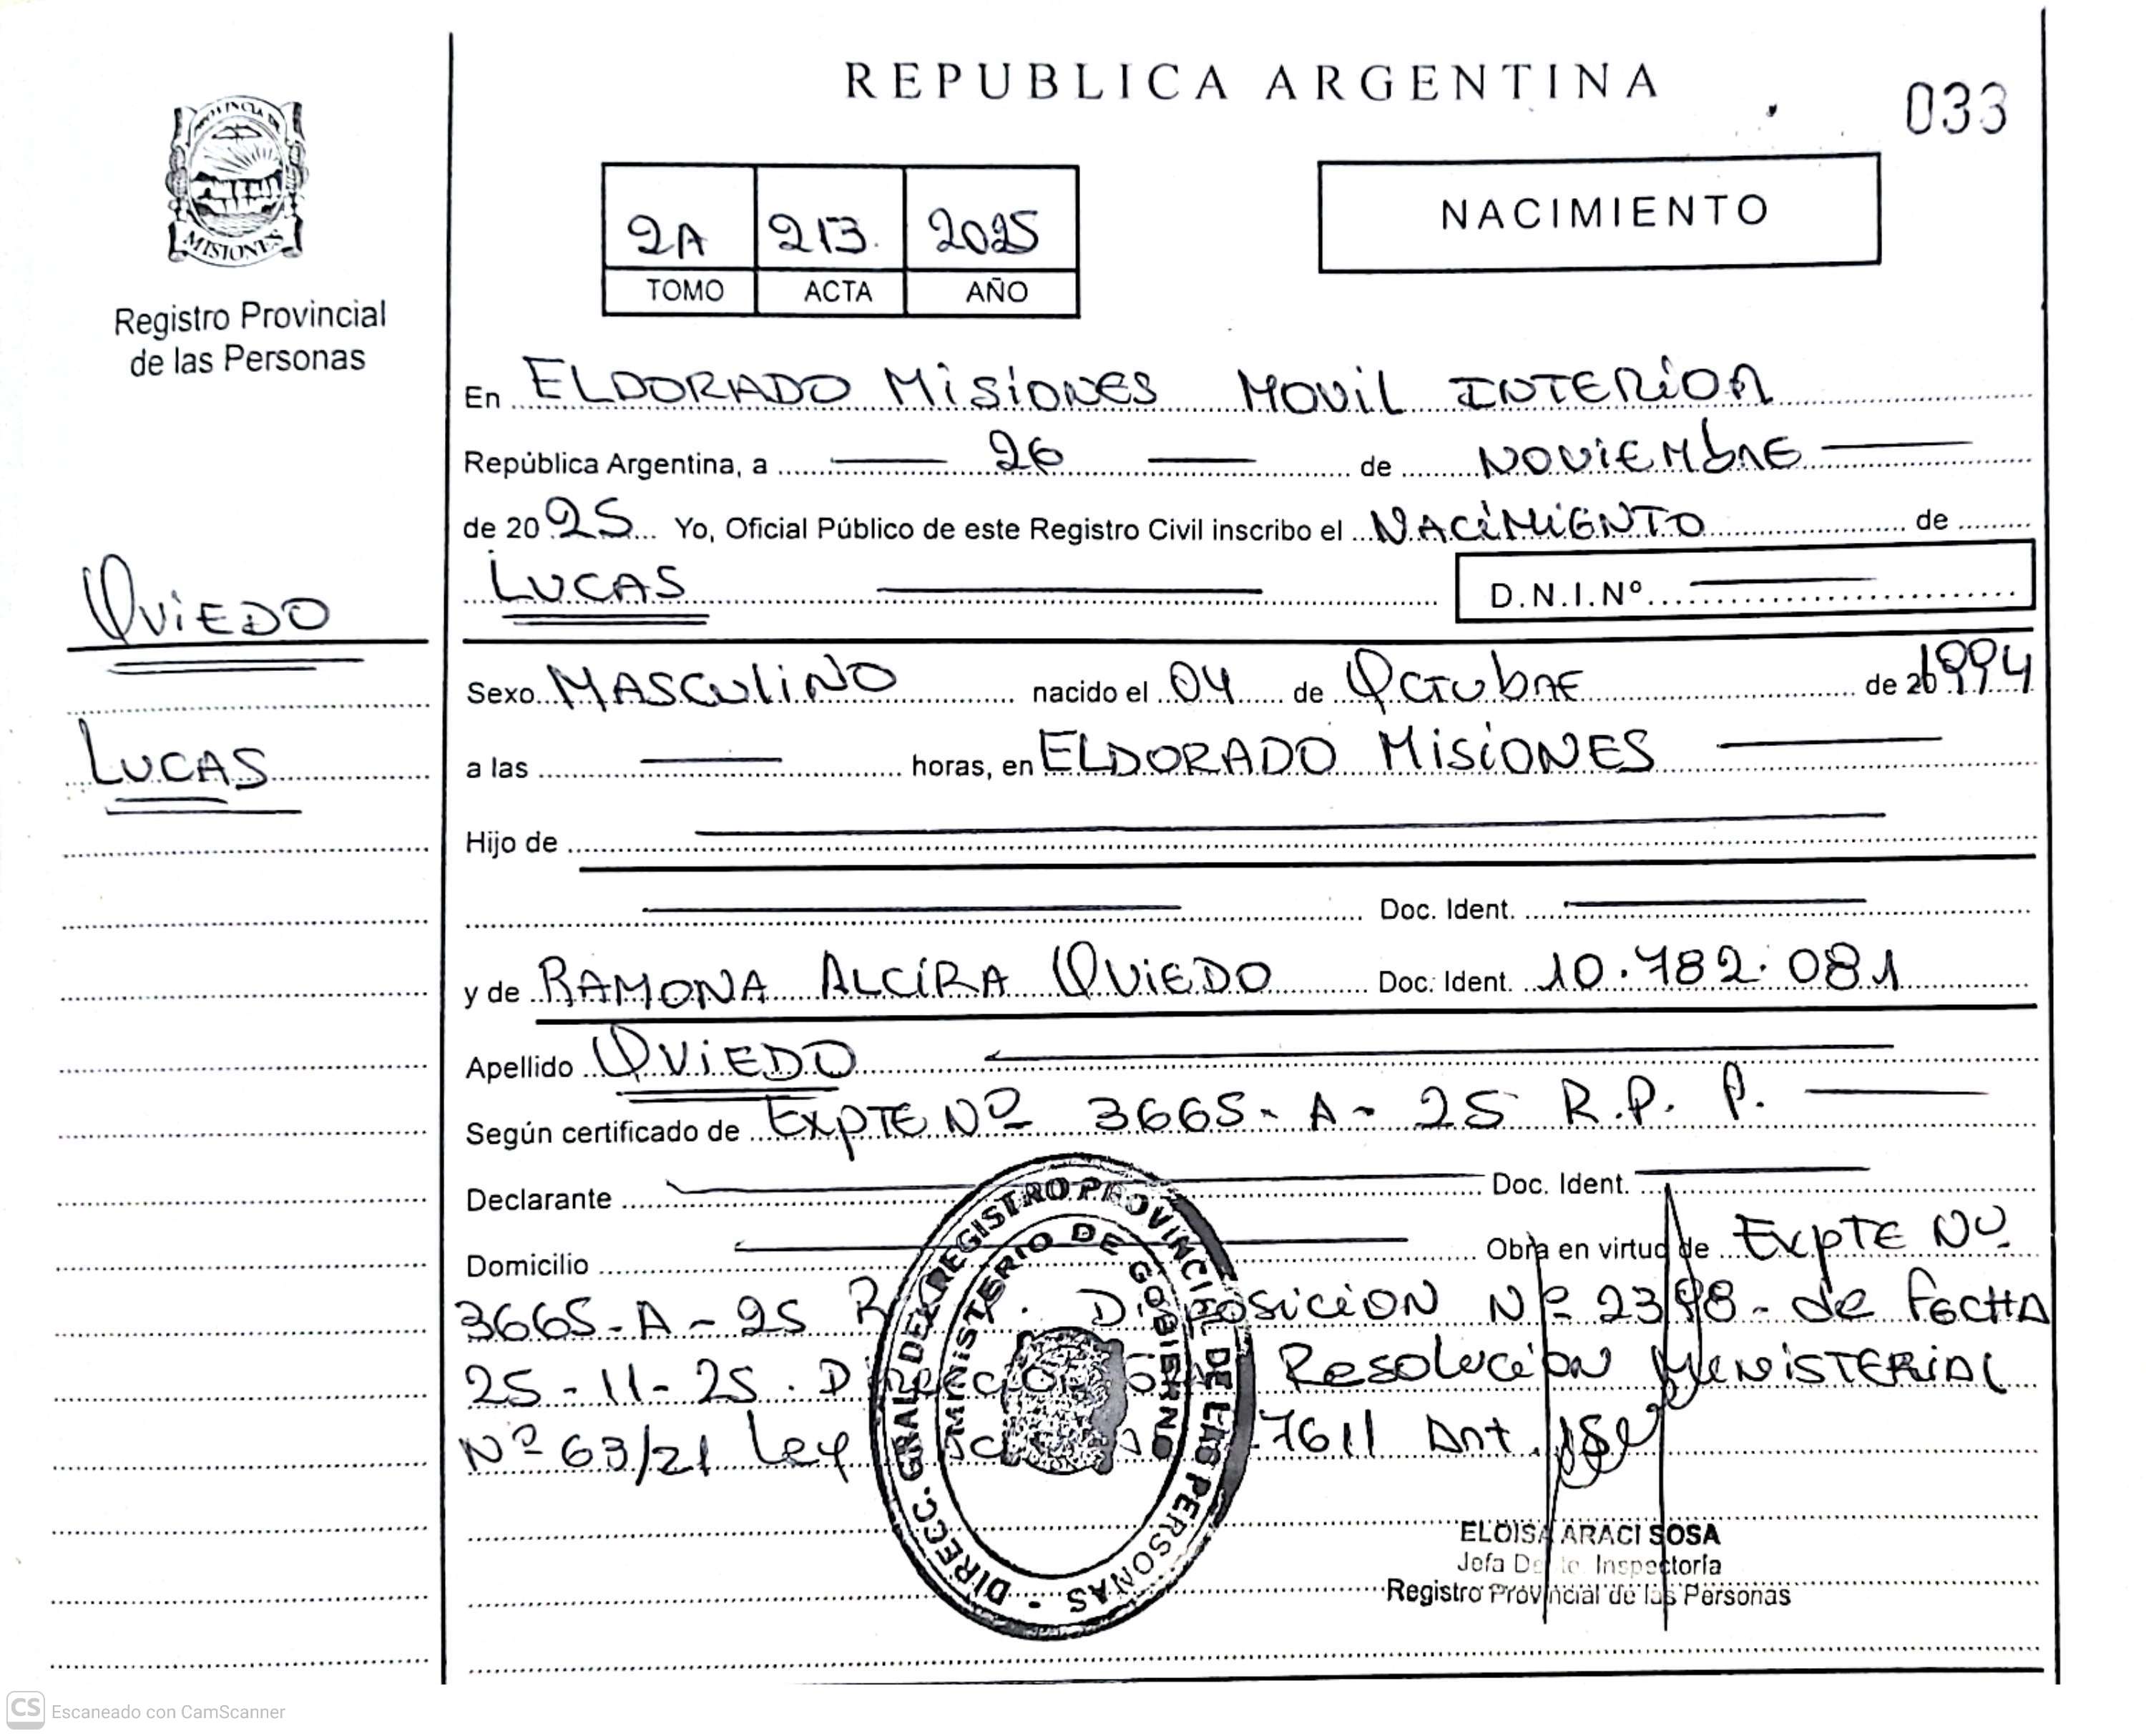 REPUBLICA ARGENTINA
033
PROVINCIA DE
MISIONES
Registro Provincial
de las Personas
2A 213. 2025
TOMO ACTA AÑO
NACIMIENTO
En ELDORADO MisiONES MOViL INTERiOR
República Argentina, a 26 de NOViEMbRE
de 20 25 Yo, Oficial Público de este Registro Civil inscribo el NACiMiENTO de
LUCAS D.N.I.Nº
OViEDO
LUCAS
Sexo MASCuliNO nacido el 04 de OCTubRE de 1994
a las horas, en ELDORADO MisiONES
Hijo de
Doc. Ident.
y de RAMONA ALCiRA OViEDO Doc. Ident. 10.782.081
Apellido OViEDO
Según certificado de EXpTE Nº 3665-A-25 R.P.P.
Declarante Doc. Ident.
Domicilio Obra en virtud de EXpTE Nº
3665-A-25 R. DisposiciON Nº 2398-de FECHA
25-11-25. Resolución MiNiSTERiAl
Nº 63/21 Ley 7611 Ant.
DIRECC. GRAL DEL REGISTRO PROVINCIAL DE LAS PERSONAS -
MINISTERIO DE GOBIERNO
ELOISA ARACI SOSA
Jefa Inspectoría
Registro Provincial de las Personas
CS Escaneado con CamScanner